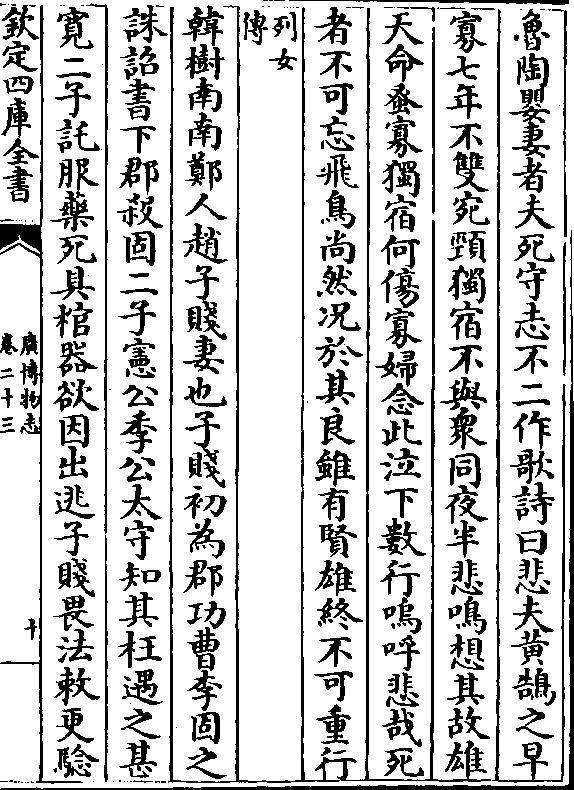 魯陶嬰妻者夫死守志不二作歌詩曰悲夫黄鵠之早
寡七年不雙宛頸獨宿不與衆同夜半悲鳴想其故雄
天命蚤寡獨宿何傷寡婦念此泣下數行嗚呼悲哉死
者不可忘飛鳥尚然况於其良雖有賢雄終不可重行
列女
傳
韓樹南南鄭人趙子賤妻也子賤初為郡功曹李固之
誅詔書下郡殺固二子憲公季公太守知其枉遇之甚
寛二子託服藥死具棺器欲因出逃子賤畏法敕更驗
欽定四庫全書
廣博物志
卷二十三
十